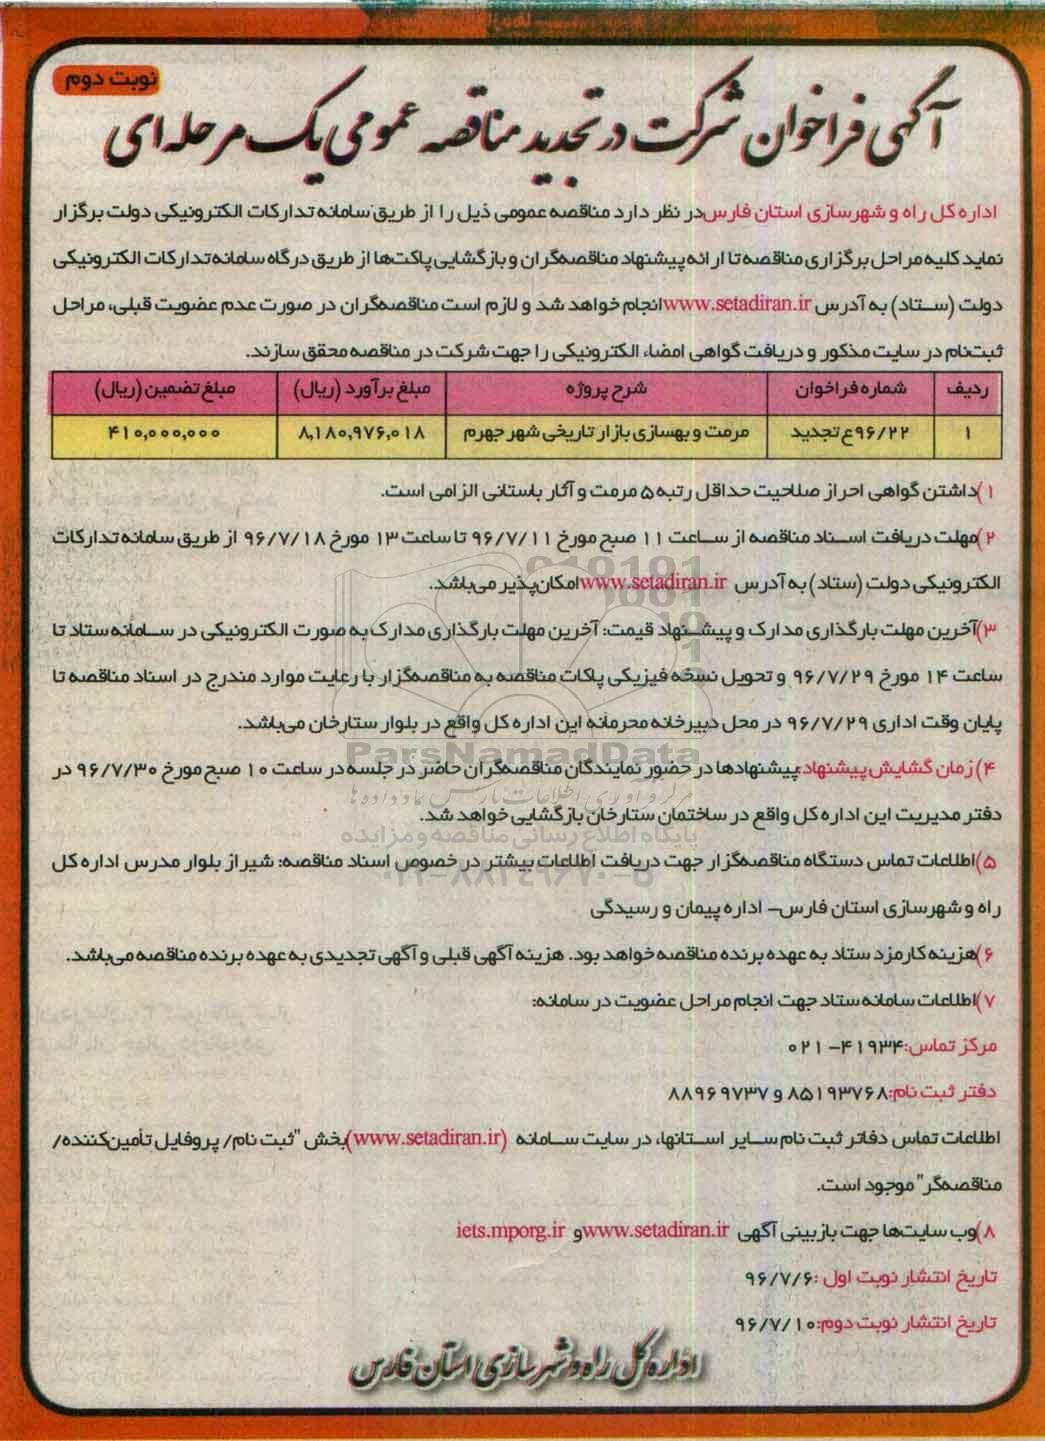 نوبت دوم
آگهی فراخوان شرکت در تجدید مناقصه عمومی یک مرحله‌ای
اداره کل راه و شهرسازی استان فارس در نظر دارد مناقصه عمومی ذیل را از طریق سامانه تدارکات الکترونیکی دولت برگزار
نماید کلیه مراحل برگزاری مناقصه تا ارائه پیشنهاد مناقصه‌گران و بازگشایی پاکت‌ها از طریق درگاه سامانه تدارکات الکترونیکی
دولت (ستاد) به آدرس www.setadiran.ir انجام خواهد شد و لازم است مناقصه‌گران در صورت عدم عضویت قبلی، مراحل
ثبت‌نام در سایت مذکور و دریافت گواهی امضاء الکترونیکی را جهت شرکت در مناقصه محقق سازند.
ردیف شماره فراخوان شرح پروژه مبلغ برآورد (ریال) مبلغ تضمین (ریال)
۱ ۹۶/۲۲ع تجدید مرمت و بهسازی بازار تاریخی شهر جهرم ۸,۱۸۰,۹۷۶,۰۱۸ ۴۱۰,۰۰۰,۰۰۰
۱)داشتن گواهی احراز صلاحیت حداقل رتبه ۵ مرمت و آثار باستانی الزامی است.
۲)مهلت دریافت اسناد مناقصه از ساعت ۱۱ صبح مورخ ۹۶/۷/۱۱ تا ساعت ۱۳ مورخ ۹۶/۷/۱۸ از طریق سامانه تدارکات
الکترونیکی دولت (ستاد) به آدرس www.setadiran.ir امکان‌پذیر می‌باشد.
۳)آخرین مهلت بارگذاری مدارک و پیشنهاد قیمت: آخرین مهلت بارگذاری مدارک به صورت الکترونیکی در سامانه ستاد تا
ساعت ۱۴ مورخ ۹۶/۷/۲۹ و تحویل نسخه فیزیکی پاکات مناقصه به مناقصه‌گزار با رعایت موارد مندرج در اسناد مناقصه تا
پایان وقت اداری ۹۶/۷/۲۹ در محل دبیرخانه محرمانه این اداره کل واقع در بلوار ستارخان می‌باشد.
ParsNamadData
۴) زمان گشایش پیشنهاد: پیشنهادها در حضور نمایندگان مناقصه‌گران حاضر در جلسه در ساعت ۱۰ صبح مورخ ۹۶/۷/۳۰ در
دفتر مدیریت این اداره کل واقع در ساختمان ستارخان بازگشایی خواهد شد.
پایگاه اطلاع رسانی مناقصه و مزایده
۵)اطلاعات تماس دستگاه مناقصه‌گزار جهت دریافت اطلاعات بیشتر در خصوص اسناد مناقصه: شیراز بلوار مدرس اداره کل
۰۲۱-۸۸۳۴۹۶۷۰-۵
راه و شهرسازی استان فارس– اداره پیمان و رسیدگی
۶)هزینه کارمزد ستاد به عهده برنده مناقصه خواهد بود. هزینه آگهی قبلی و آگهی تجدیدی به عهده برنده مناقصه می‌باشد.
۷)اطلاعات سامانه ستاد جهت انجام مراحل عضویت در سامانه:
مرکز تماس: ۴۱۹۳۴–۰۲۱
دفتر ثبت نام: ۸۵۱۹۳۷۶۸ و ۸۸۹۶۹۷۳۷
اطلاعات تماس دفاتر ثبت نام سایر استانها، در سایت سامانه (www.setadiran.ir) بخش "ثبت نام/ پروفایل تأمین‌کننده/
مناقصه‌گر" موجود است.
۸)وب سایت‌ها جهت بازبینی آگهی www.setadiran.ir و iets.mporg.ir
تاریخ انتشار نوبت اول :۹۶/۷/۶
تاریخ انتشار نوبت دوم: ۹۶/۷/۱۰
اداره کل راه و شهرسازی استان فارس